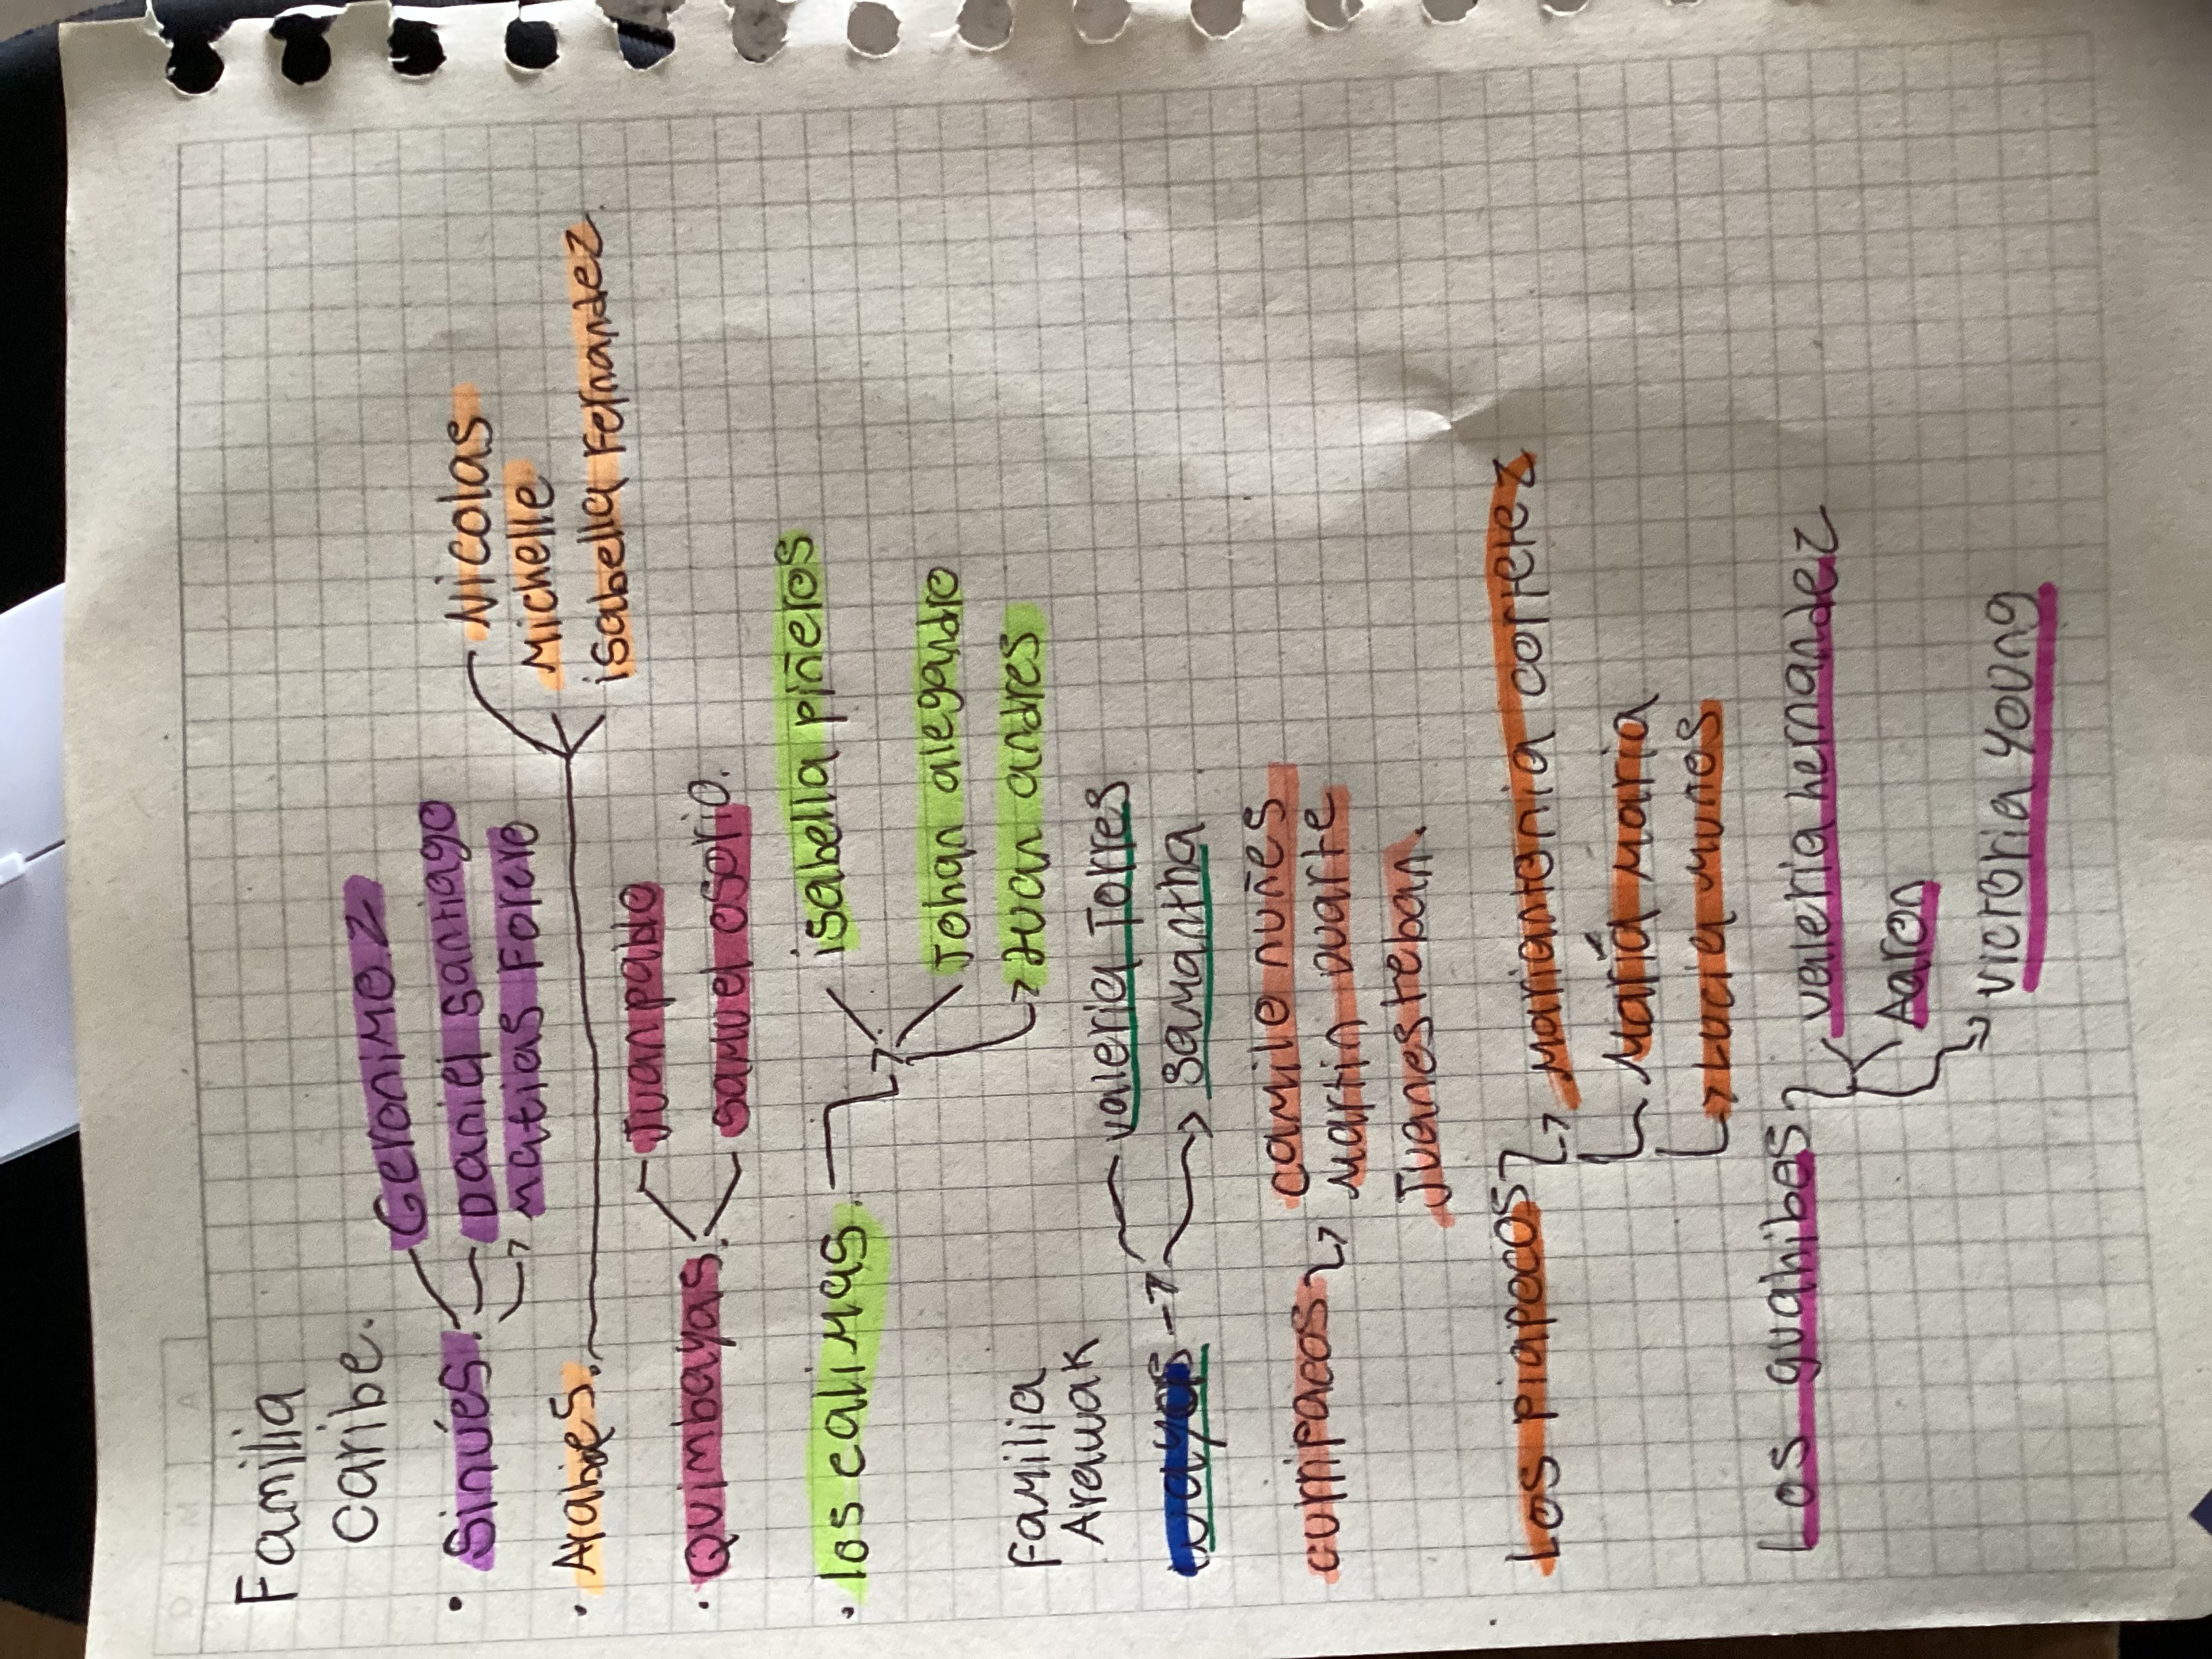 Familia
caribe.
Geronimo z
• Sinúes. Daniel santiago
Matias Forero
Nicolas
• Arahues. Michelle
isabella Fernandez
Juanpablo
• Quimbayas.
samuel osorio.
isabella piñeros
• los calimas.
Johan alegandro
Juan andres
Familia
Arawak
valeria Torres
wayos
Samantha
camilo nuñes
curripacos Martin Duarte
Juanesteban.
Los piapocos Mariantonia correrez
Maria Maria
Lucia Munes
Los guahibos valeria hernandez
Aaron
victoria young